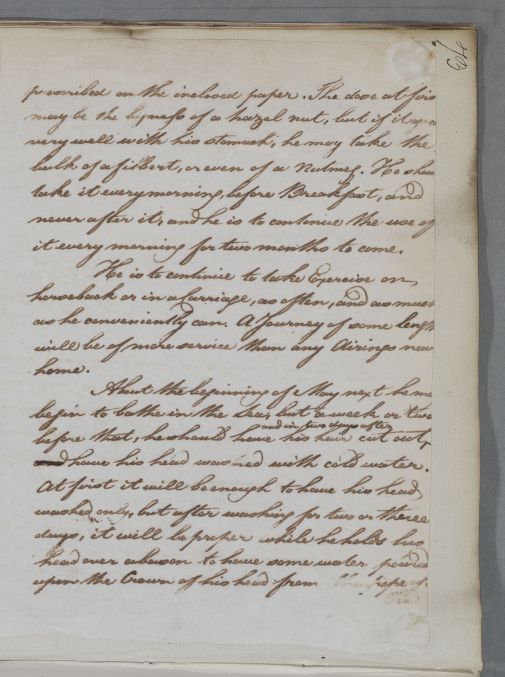 143
prescribed on the inclosed paper. The dose at firs
may be the byness of a hazel nut, but if it agre
very well with his stomach, he may take the
bulk of a filbert, or even of a Nutmeg. He shou
take it every morning, before Breakfast, and
never after it, and he is to continue the use of
it every morning for two months to come.
He is to continue to take Exercise on
horseback or in a Carriage, as often, and as much
as he conveniently can. A Journey of some length
will be of more service than any Airings near
home.
About the beginning of May next he may
begin to bathe in the Sea, but a week or two
and in two days after
before that, he should have his hair cut out,
have his head washed with cold water.
At first it will be enough to have his head
washed only, but after washing for two or three
days, it will be proper while he holds his
head over a bason to have some water poured
upon the Crown of his head from